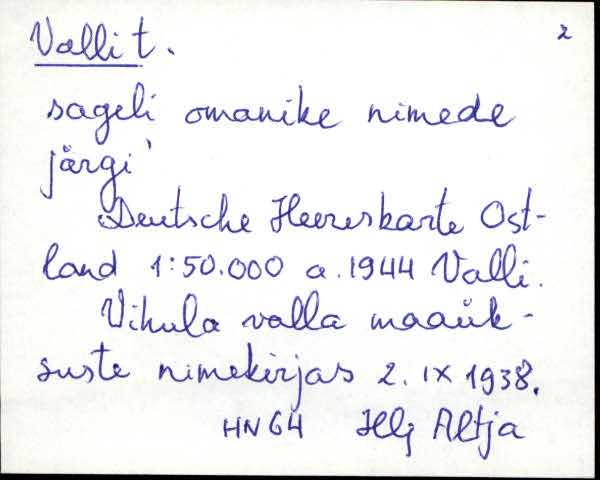 Valli t. 2
sageli omanike nimede
järgi'
Deutsche Heereskarte Ost-
land 1:50.000 a. 1944 Valli.
Vihula valla maaük-
suste nimekirjas 2. IX 1938.
HN 64 Hlj Altja